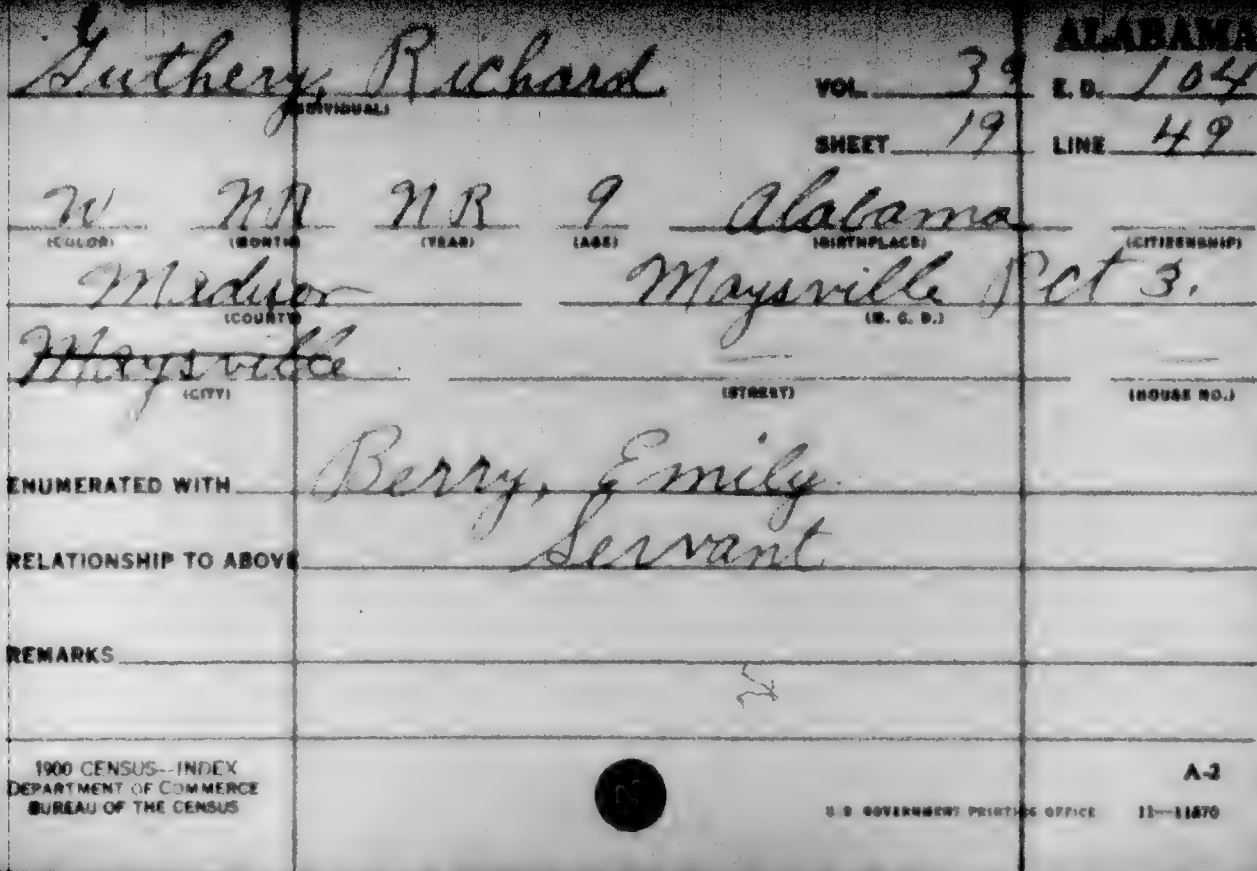 ALABAMA
Guthery, Richard VOL. 39 E. D. 104
(INDIVIDUAL)
SHEET 19 LINE 49
W NR NR 9 Alabama
(COLOR) (MONTH) (YEAR) (AGE) (BIRTHPLACE) (CITIZENSHIP)
Madison Maysville Pct 3.
(COUNTY) (M. C. D.)
Maysville — —
(CITY) (STREET) (HOUSE NO.)
ENUMERATED WITH Berry, Emily
RELATIONSHIP TO ABOVE Servant
REMARKS
1900 CENSUS—INDEX A-2
DEPARTMENT OF COMMERCE
BUREAU OF THE CENSUS U S GOVERNMENT PRINTING OFFICE 11—11870